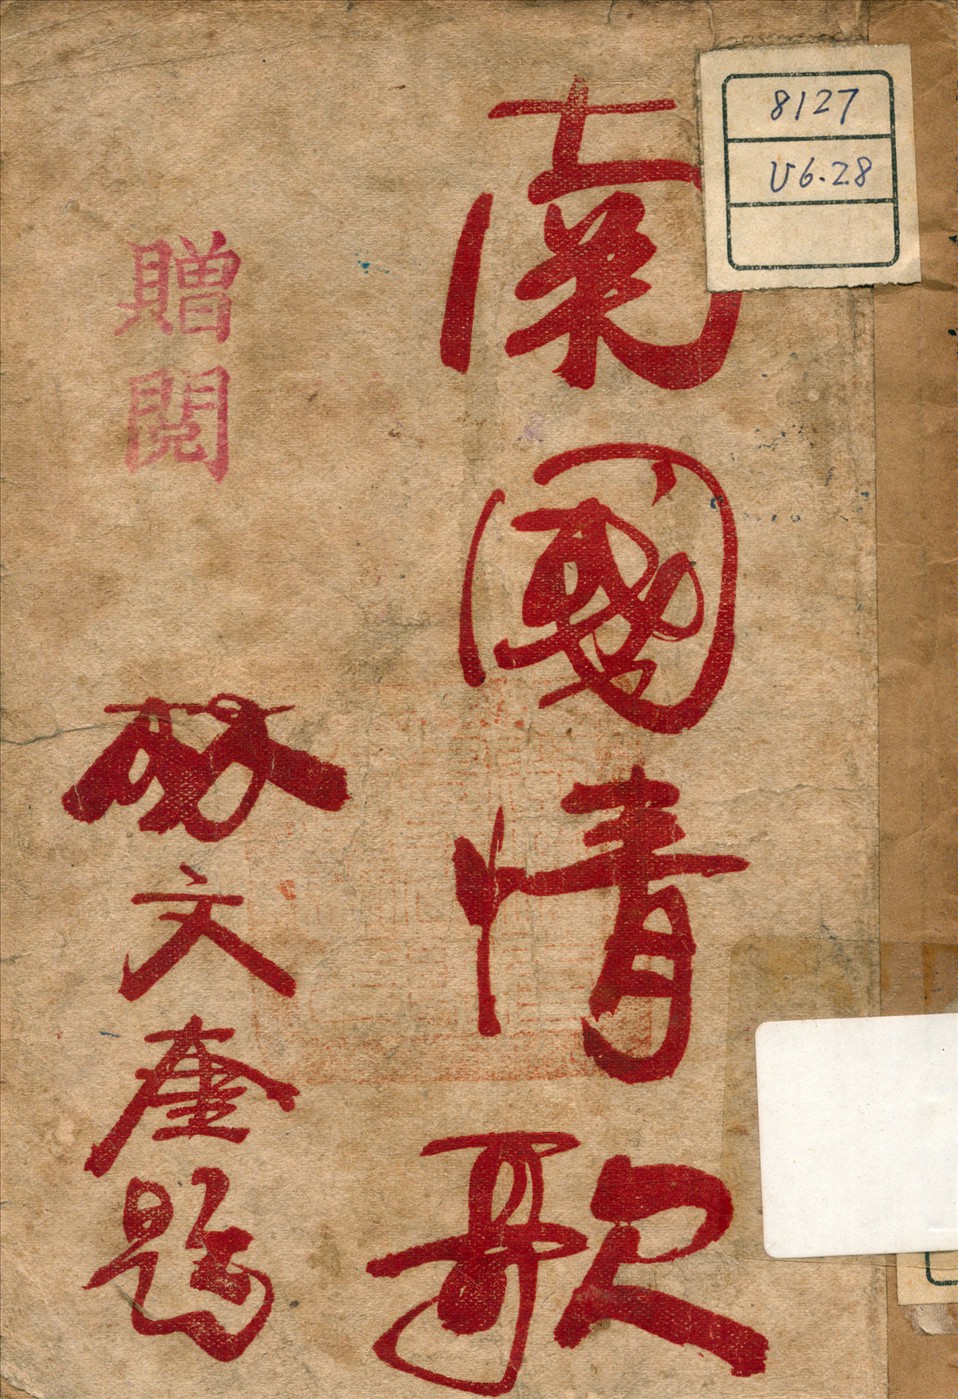 南國情歌
8127
U6.28
贈閱
文奎題